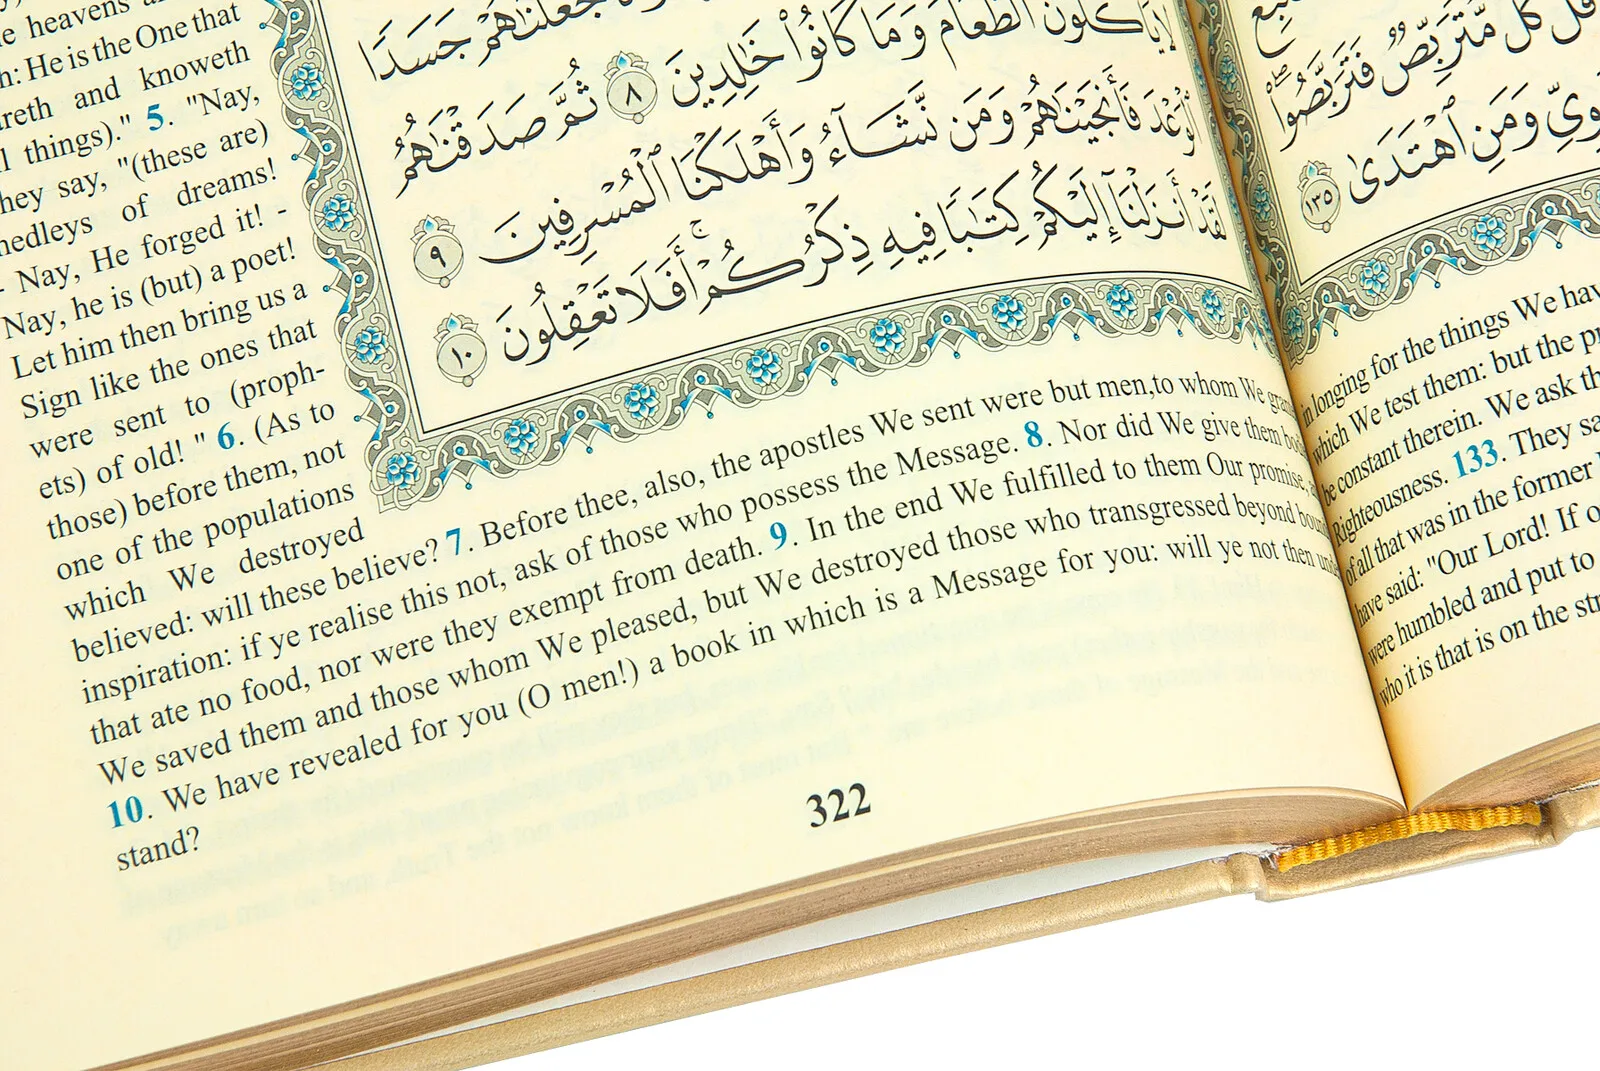 heavens
: He is the One that
and knoweth
things)." 5. "Nay,
they say, "(these are)
medleys of dreams!
- Nay, He forged it! -
Nay, he is (but) a poet!
Let him then bring us a
Sign like the ones that
were sent to (proph-
ets) of old! " 6. (As to
those) before them, not
one of the populations
which We destroyed
believed: will these believe? 7. Before thee, also, the apostles We sent were but men,to whom We
inspiration: if ye realise this not, ask of those who possess the Message. 8. Nor did We give them
that ate no food, nor were they exempt from death. 9. In the end We fulfilled to them Our promise,
We saved them and those whom We pleased, but We destroyed those who transgressed beyond
10. We have revealed for you (O men!) a book in which is a Message for you: will ye not then
stand?
جَعَلْنَٰهُمْ جَسَدًا
لَّا يَأْكُلُونَ ٱلطَّعَامَ وَمَا كَانُوا۟ خَٰلِدِينَ ٨ ثُمَّ صَدَقْنَٰهُمُ
ٱلْوَعْدَ فَأَنجَيْنَٰهُمْ وَمَن نَّشَآءُ وَأَهْلَكْنَا ٱلْمُسْرِفِينَ ٩
لَقَدْ أَنزَلْنَآ إِلَيْكُمْ كِتَٰبًا فِيهِ ذِكْرُكُمْ ۚ أَفَلَا تَعْقِلُونَ ١٠
322
قُلْ كُلٌّ مُّتَرَبِّصٌ فَتَرَبَّصُوا۟ ۖ
وَمَنِ ٱهْتَدَىٰ ١٣٥
in longing for the things We
which We test them: but the
be constant therein. We ask
Righteousness. 133. They
of all that was in the former
have said: "Our Lord! If
were humbled and put to
who it is that is on the